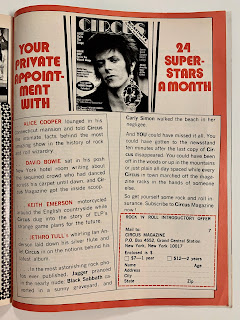 YOUR
PRIVATE
APPOINT-
MENT
WITH
CIRCUS
24
SUPER-
STARS
A MONTH
ALICE COOPER lounged in his
Connecticut mansion and told Circus
the intimate facts behind the most
amazing show in the history of rock
and roll wizardry.
DAVID BOWIE sat in his posh
New York hotel room writing about
the sequined dancer who had danced
across his carpet until dawn, and Cir-
cus Magazine got the inside scoop.
KEITH EMERSON motorcycled
around the English countryside while
Circus dug into the story of ELP's
strange game plans for the future.
JETHRO TULL's whirling Ian An-
derson laid down his silver flute and
let Circus in on the notions behind his
latest album.
In the most astonishing rock pho-
tos ever published, Jagger pranced
in the nearly nude, Black Sabbath
in a sunny graveyard, and
Carly Simon walked the beach in her
negligee.
And YOU could have missed it all. You
could have gotten to the newsstand
ten minutes after the last copy of Cir-
cus disappeared. You could have been
off in the woods or up in the mountains
or just plain all day spaced while every
Circus in town marched off the maga-
zine racks in the hands of someone
else.
So get yourself some rock and roll in-
surance. Subscribe to Circus Magazine
now!
ROCK 'N' ROLL INTRODUCTORY OFFER
Mail to:
CIRCUS MAGAZINE
P.O. Box 4552, Grand Central Station
New York, New York 10017
Enclosed is $
$7—1 year $12—2 years
Name Age
Address
City
State Zip